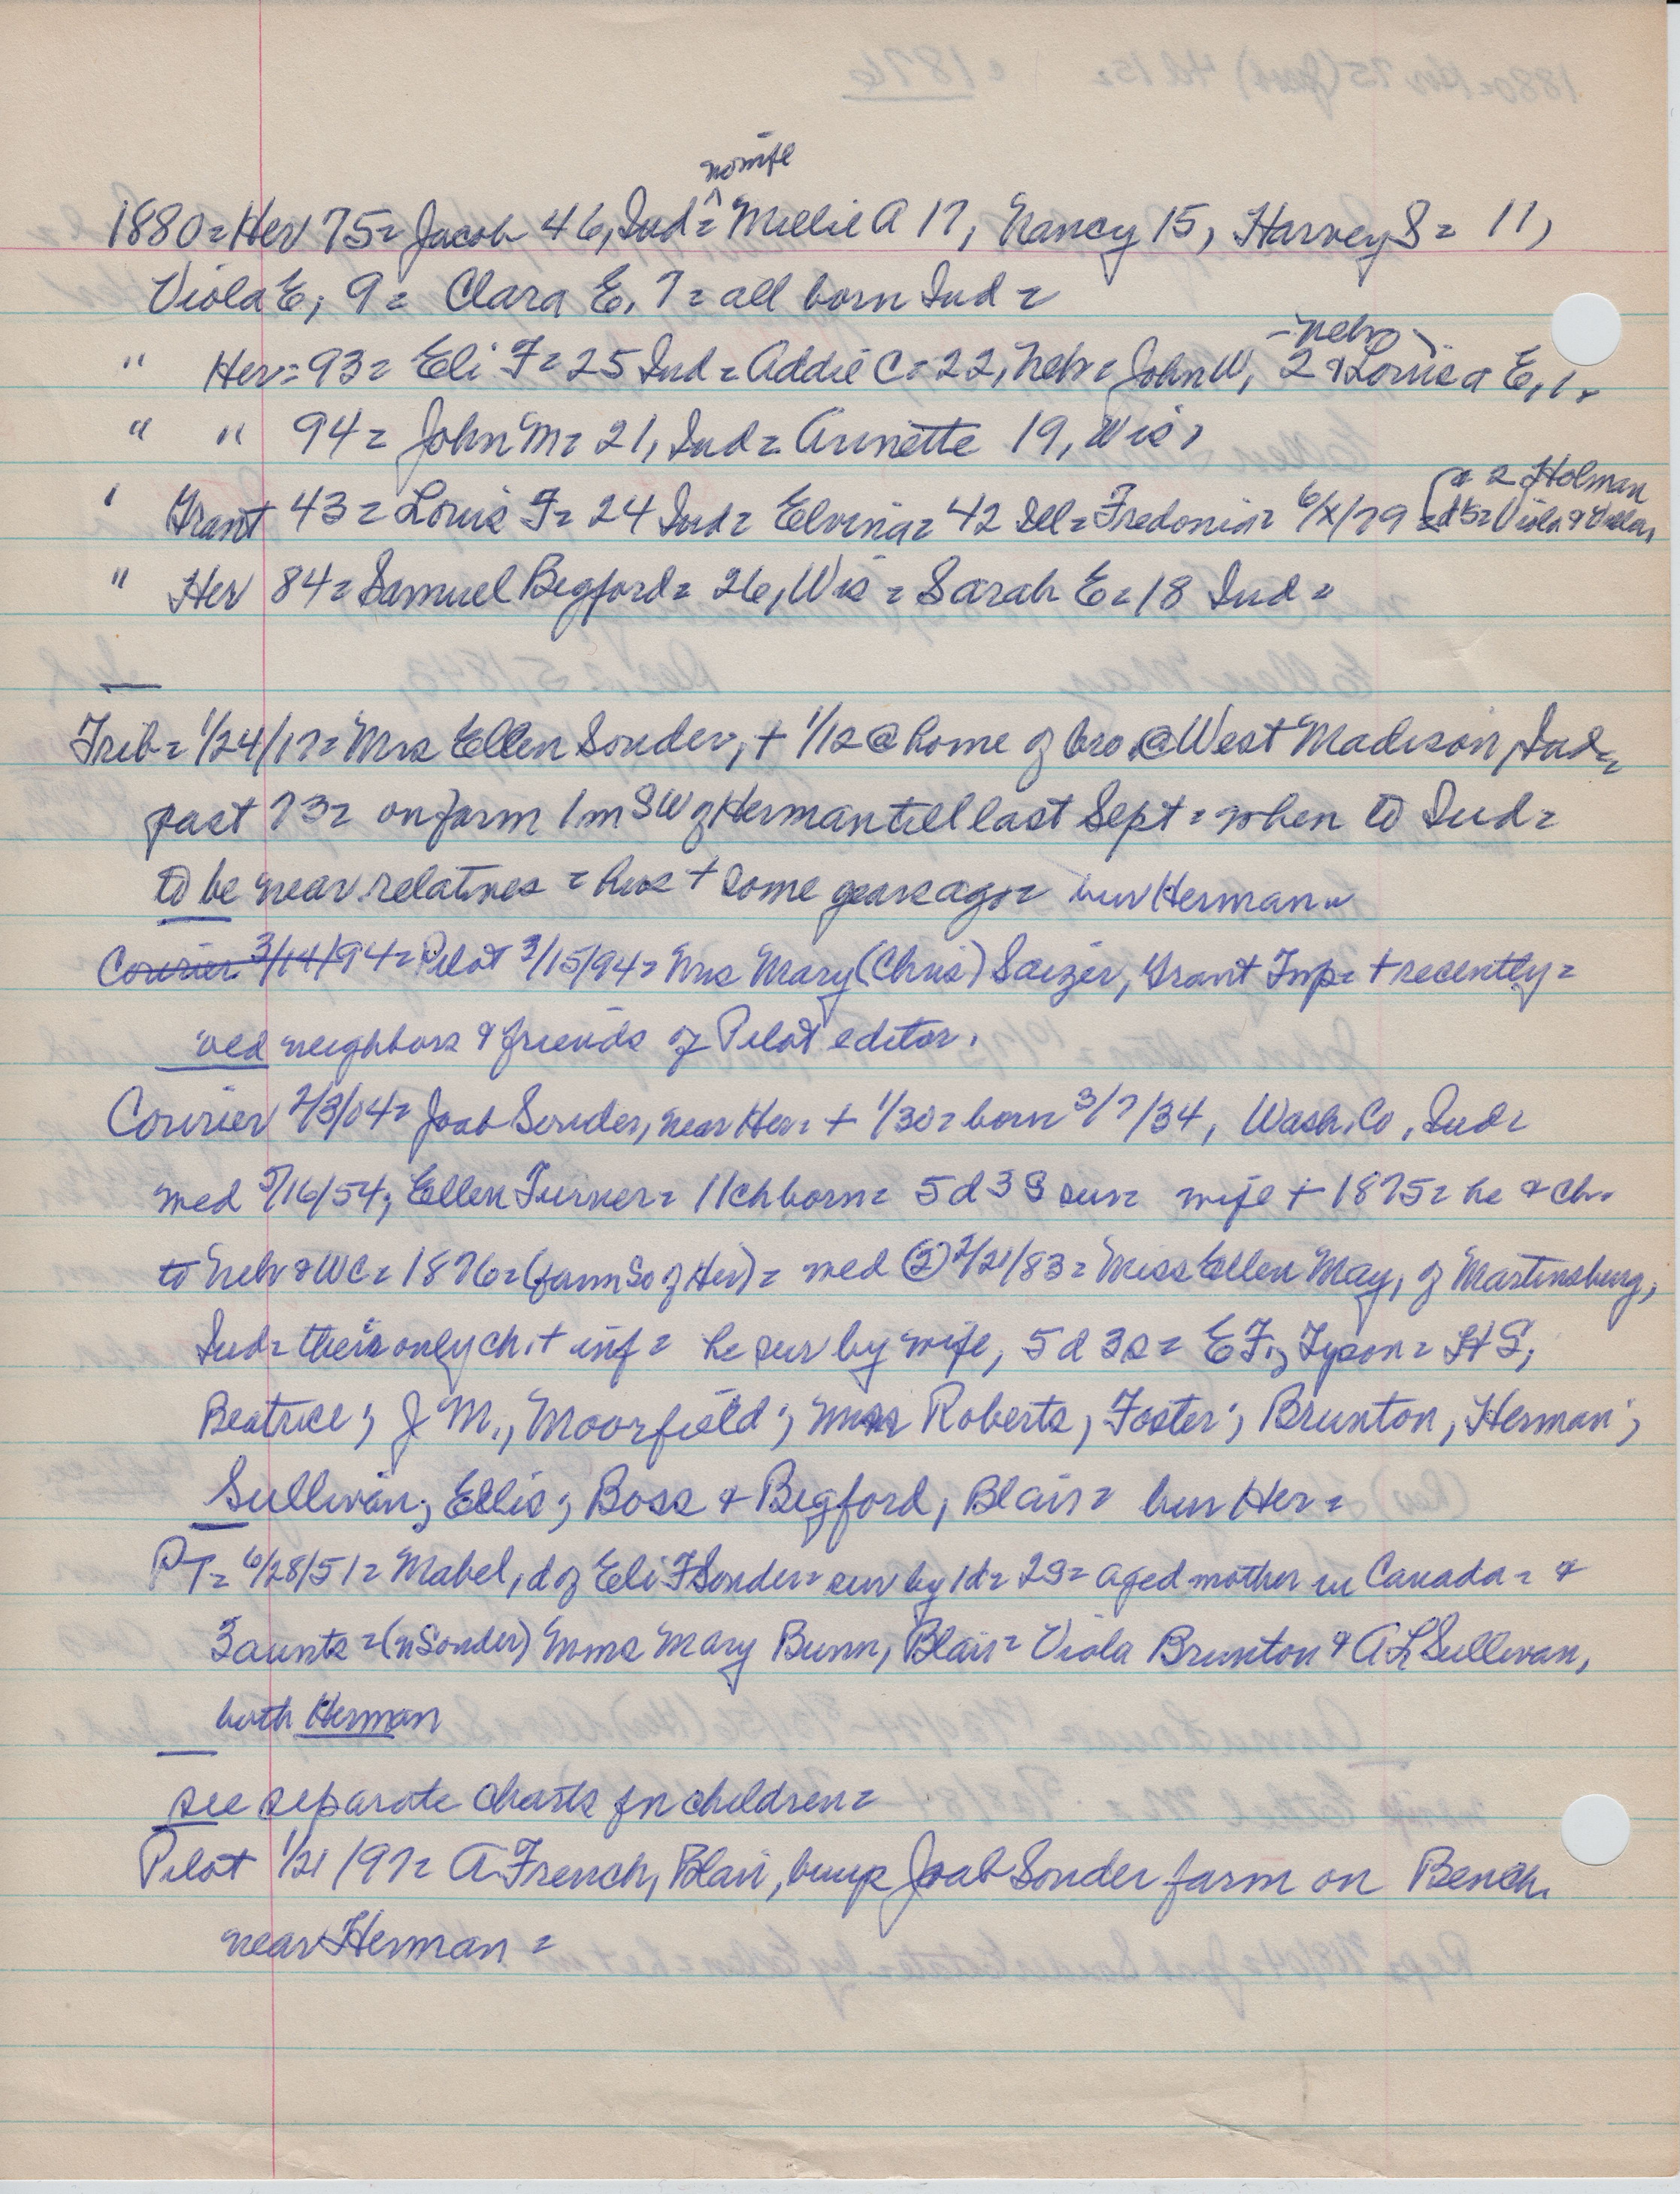 no wife
1880= Her 75= Jacob 46, Ind = ^ Millie A 17, Nancy 15, Harvey S = 11,
Viola E, 9 = Clara E, 7 = all born Ind =
- Nebr -
" Her = 93 = Eli F = 25 Ind = Addie C = 22, Nebr = John W, 2 & Louisa E, 1.
" " 94 = John M = 21, Ind = Annette 19, Wis,
& 2 Holman
' Grant 43 = Louis F = 24 Ind = Elvina = 42 Ill = Fredonia = 6/x/79 = ds = Viola &
" Her 84 = Samuel Begford = 26, Wis = Sarah E = 18 Ind =
Trib = 1/24/17 = Mrs Ellen Souder, + 1/12 @ home of bro. @ West Madison, Ind =
past 73 = on farm 1 m SW of Herman till last Sept = when to Ind =
to be near relatives = hus + some years ago = bur Herman =
Courier 3/14/94 = Pilot 3/15/94 = Mrs Mary (Chris) Saizer, Grant Twp = + recently =
old neighbors & friends of Pilot editor.
Courier 2/3/04 = Joab Souder, near Her = + 1/30 = born 3/7/34, Wash. Co, Ind =
med 3/16/54, Ellen Turner = 11 ch born = 5 d 3 S sur = wife + 1875 = he & ch.
to Nebr & WC = 1876 = (farm So of Her) = med (2) 2/21/83 = Miss Ellen May, of Martinsburg,
Ind = their only ch + inf = he sur by wife, 5 d 3 s = E F., Tyson = H S,
Beatrice; J M., Moorfield; Mmes Roberts, Foster; Brunton, Herman;
Sullivan; Ellis; Boss & Begford, Blair = bur Her =
PT = 6/28/51 = Mabel, d of Eli F Souder = sur by 1 d = 2 S = aged mother in Canada = &
3 aunts = (n Souder) Mmes Mary Bunn, Blair = Viola Brunton & A L Sullivan,
both Herman
see separate charts fn children =
Pilot 1/21/97 = A. French, Blair, buys Joab Souder farm on Bench,
near Herman =